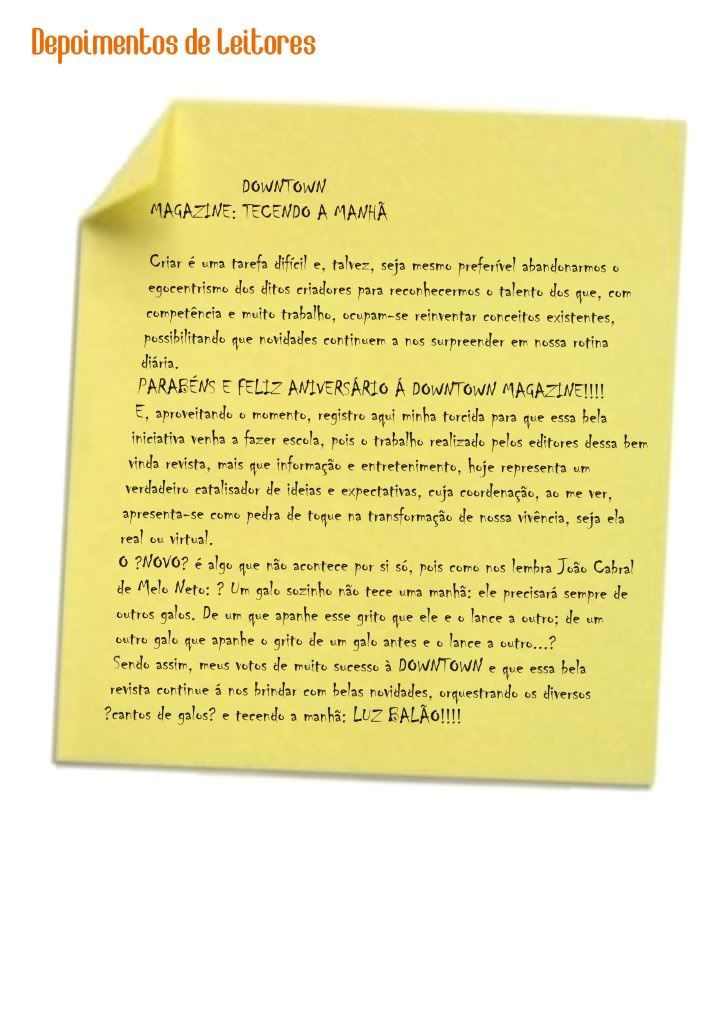 Depoimentos de Leitores
DOWNTOWN
MAGAZINE: TECENDO A MANHÃ
Criar é uma tarefa difícil e, talvez, seja mesmo preferível abandonarmos o
egocentrismo dos ditos criadores para reconhecermos o talento dos que, com
competência e muito trabalho, ocupam-se reinventar conceitos existentes,
possibilitando que novidades continuem a nos surpreender em nossa rotina
diária.
PARABÉNS E FELIZ ANIVERSÁRIO Á DOWNTOWN MAGAZINE!!!!
E, aproveitando o momento, registro aqui minha torcida para que essa bela
iniciativa venha a fazer escola, pois o trabalho realizado pelos editores dessa bem
vinda revista, mais que informação e entretenimento, hoje representa um
verdadeiro catalisador de ideias e expectativas, cuja coordenação, ao me ver,
apresenta-se como pedra de toque na transformação de nossa vivência, seja ela
real ou virtual.
O ?NOVO? é algo que não acontece por si só, pois como nos lembra João Cabral
de Melo Neto: ? Um galo sozinho não tece uma manhã: ele precisará sempre de
outros galos. De um que apanhe esse grito que ele e o lance a outro; de um
outro galo que apanhe o grito de um galo antes e o lance a outro...?
Sendo assim, meus votos de muito sucesso à DOWNTOWN e que essa bela
revista continue á nos brindar com belas novidades, orquestrando os diversos
?cantos de galos? e tecendo a manhã: LUZ BALÃO!!!!